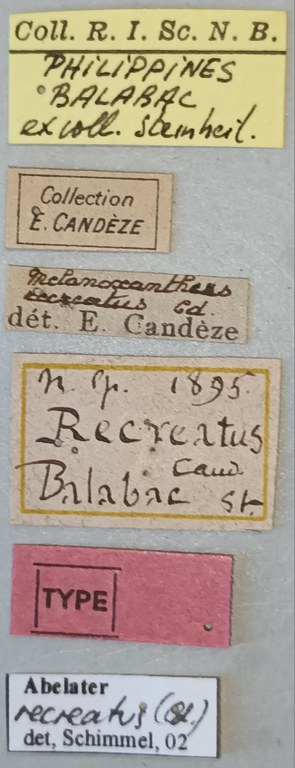 Coll. R. I. Sc. N. B.
PHILIPPINES
BALABAC
ex coll. Steinheil.
Collection
E. CANDÈZE
Melanoxanthus
recreatus Cd.
dét. E. Candèze
n. sp. 1895
Recreatus
Cand.
Balabac St.
TYPE
Abelater
recreatus (Cd.)
det, Schimmel, 02